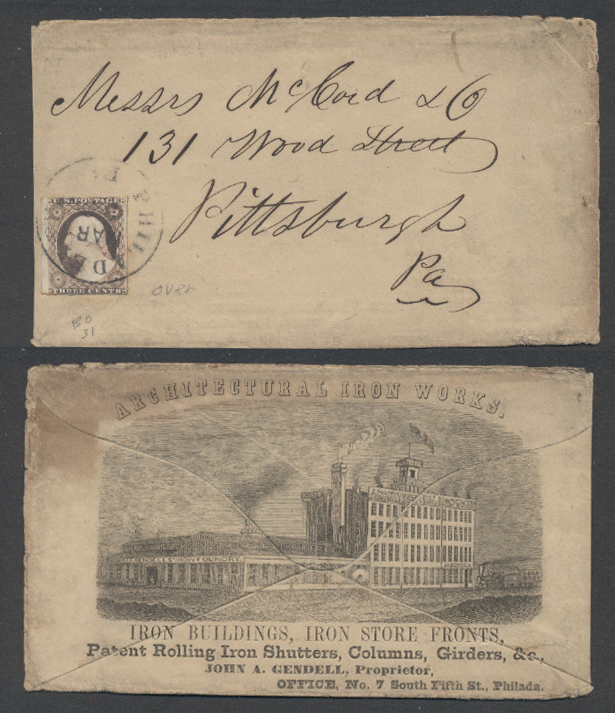 Messrs McCord & Co
131 Wood Street
Pittsburgh
Pa
U.S. POSTAGE
THREE CENTS
PHILADE
over
ARCHITECTURAL IRON WORKS.
IRON BUILDINGS, IRON STORE FRONTS,
Patent Rolling Iron Shutters, Columns, Girders, &c.,
JOHN A. GENDELL, Proprietor,
OFFICE, No. 7 South Fifth St., Philada.